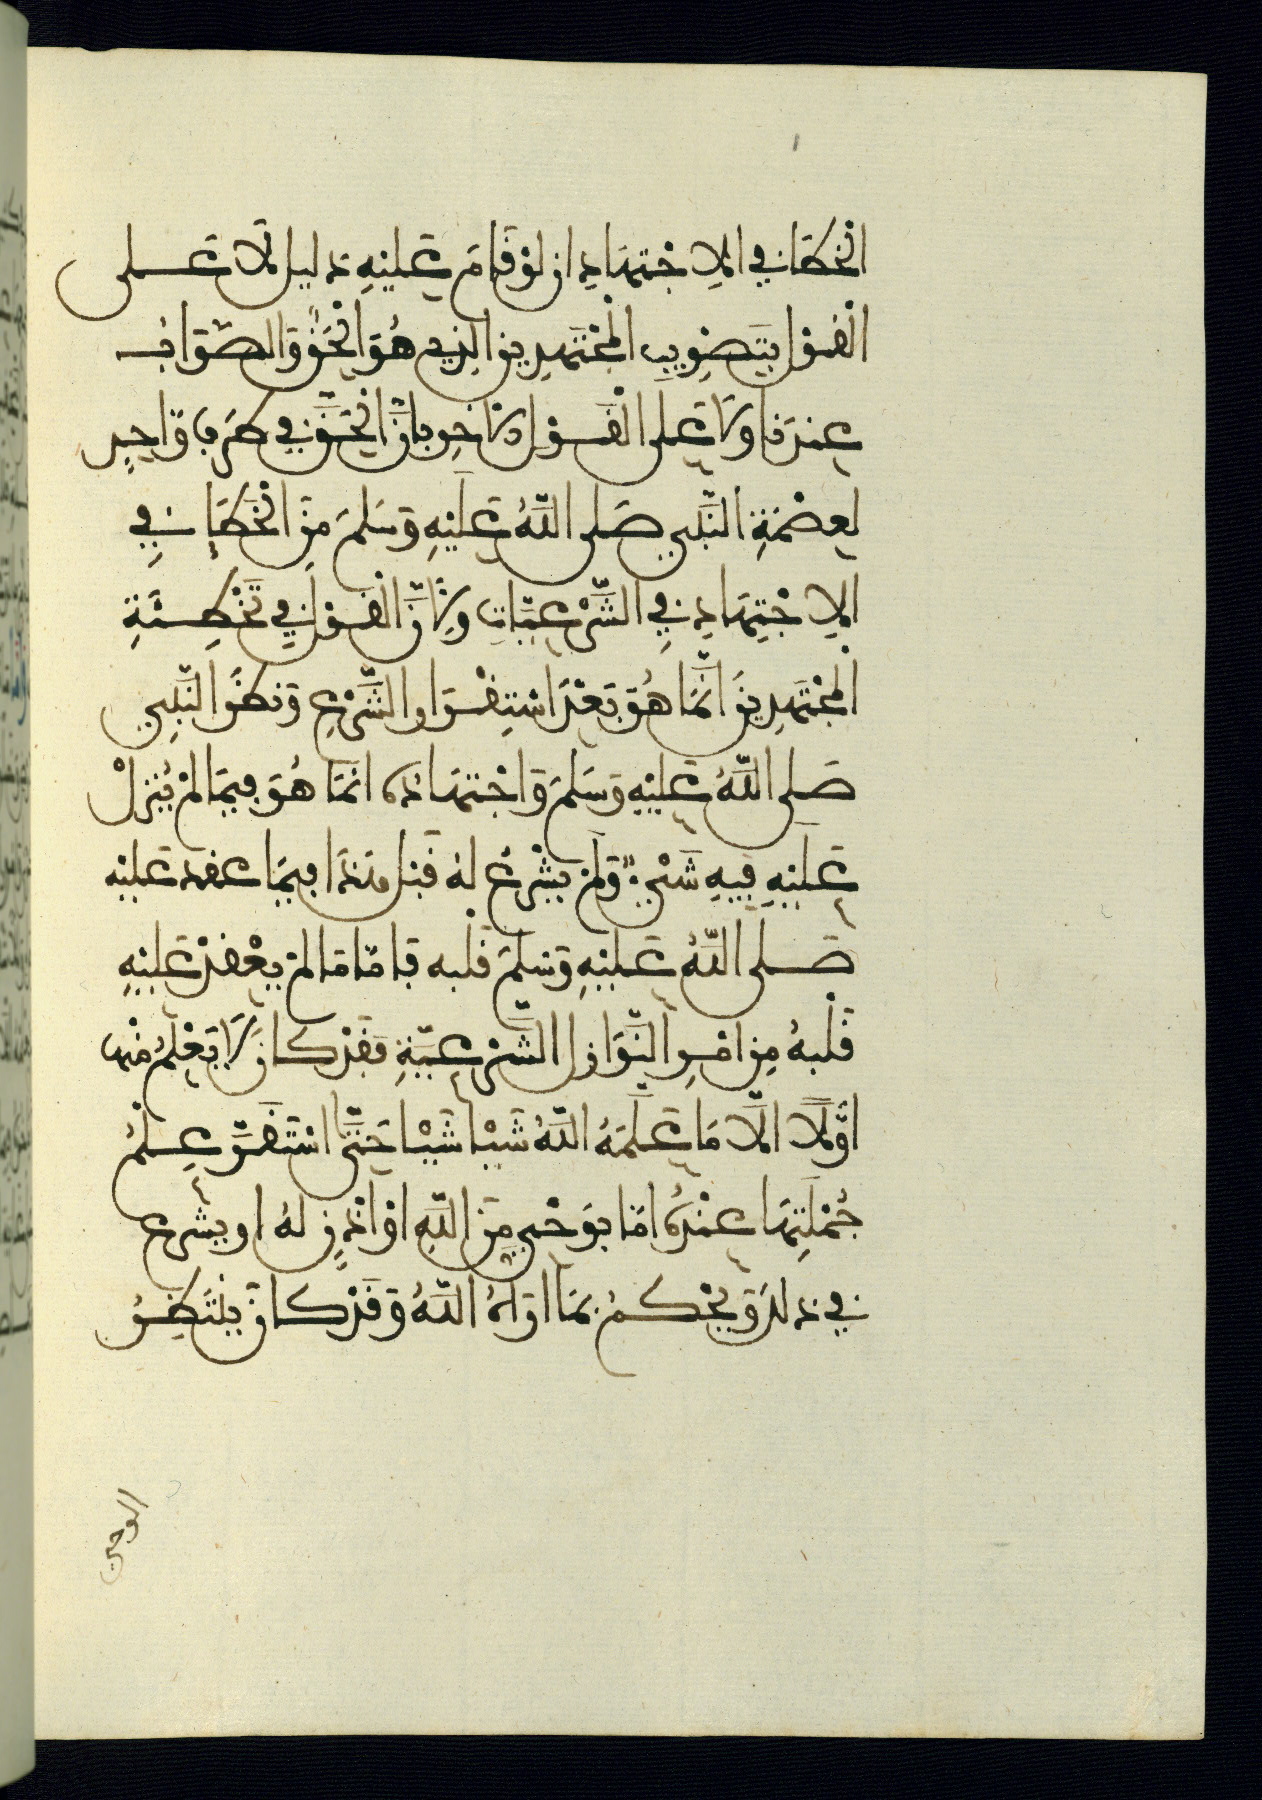 الْخَطَإِ فِي الِاجْتِهَادِ ان لوْ قَامَ عَلَيْهِ دليل لَا عَلى
الْقَوْل بِتَصْوِيبِ الْمُجْتَهِدِينَ الذِي هُوَ الْحَقُّ وَالصَّوَابُ
عِنْدَنا وَلَا عَلى الْقَوْل الْآخر بانَّ الْحَقَّ فِي طَرَفٍ وَّاحِدٍ
لِعِصْمَةِ النَّبِي صَلى اللَّهُ عَلَيْهِ وَسَلمَ مِنَ الْخَطَإِ فِي
الِاجْتِهَادِ فِي الشَّرْعِيَّاتِ وَلِأَنَّ الْقَوْلَ فِي تَخْطِئَةِ
الْمُجْتَهِدِينَ انَّمَا هُوَ بَعْدَ اسْتِقْرَار الشَّرْعِ وَنَظَرُ النَّبِي
صَلى اللَّهُ عَلَيْهِ وَسَلمَ وَاجْتِهَادُهُ انمَا هُوَ فِيمَا لمْ يُنْزلْ
عَلَيْهِ فِيهِ شَيْءٌ وَلَمْ يشْرَعْ لهُ قَبْل هَذَا فِيمَا عقد عَلَيْهِ
صَلى اللَّهُ عَلَيْهِ وَسَلمَ قَلْبه فَامَّا مَا لمْ يعْقدْ عَلَيْهِ
قَلْبهُ مِن امْرِ النَّوَازل الشَّرْعِيَّةِ فَقَدْ كانَ لَا يَعْلمُ مِنْهَا
اوَّلًا الَّا مَا عَلمَهُ اللَّهُ شَيْا شَيْا حَتَّى اسْتَقَرَّ عِلْمُ
جُمْلَتِهَا عِنْدَهُ امَّا بوَحْيٍ مِنَ اللَّهِ اوْ اذْنٍ لهُ ان يشْرع
فِي ذلكَ وَيَحْكمُ بمَا ارَاهُ اللَّهُ وَقَدْ كانَ يَنْتَظِرُ
الوحي